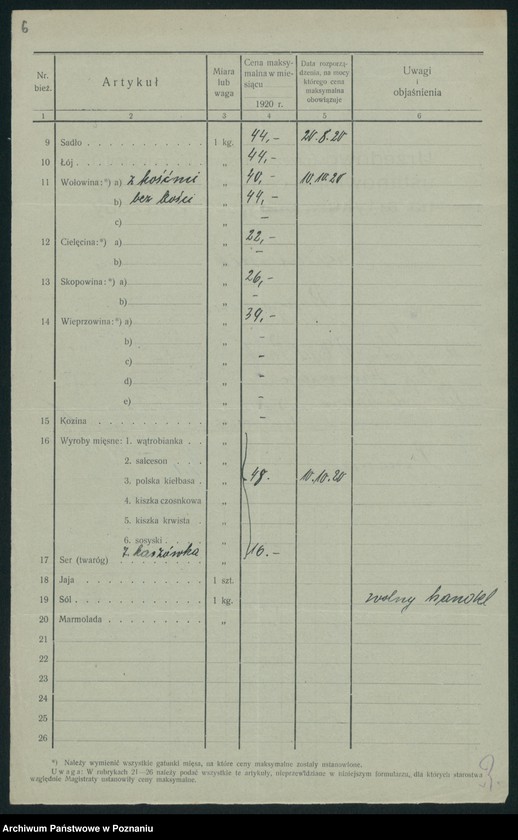 6
Nr. bież. Artykuł Miara lub waga Cena maksymalna w miesiącu 1920 r. Data rozporządzenia, na mocy którego cena maksymalna obowiązuje Uwagi i objaśnienia
1 2 3 4 5 6
9 Sadło 1 kg. 44,- 20.8.20
10 Łój „ 44,-
11 Wołowina:*) a) z kośćmi „ 40,- 10.10.20
b) bez kości „ 44,-
c) „ -
12 Cielęcina:*) a) „ 22,-
b) „ -
13 Skopowina:*) a) „ 26,-
b) „ -
14 Wieprzowina:*) a) „ 39,-
b) „ -
c) „ -
d) „ -
e) „ -
15 Kozina „ -
16 Wyroby mięsne: 1. wątrobianka „
2. salceson „
3. polska kiełbasa „ 48.- 10.10.20
4. kiszka czosnkowa „
5. kiszka krwista „
6. sosyski „
7. kaszówka 16.-
17 Ser (twaróg) „
18 Jaja 1 szt.
19 Sól 1 kg. wolny handel
20 Marmolada „
21
22
23
24
25
26
*) Należy wymienić wszystkie gatunki mięsa, na które ceny maksymalne zostały ustanowione.
Uwaga: W rubrykach 21—26 należy podać wszystkie te artykuły, nieprzewidziane w niniejszym formularzu, dla których starostwa
względnie Magistraty ustanowiły ceny maksymalne.
Archiwum Państwowe w Poznaniu